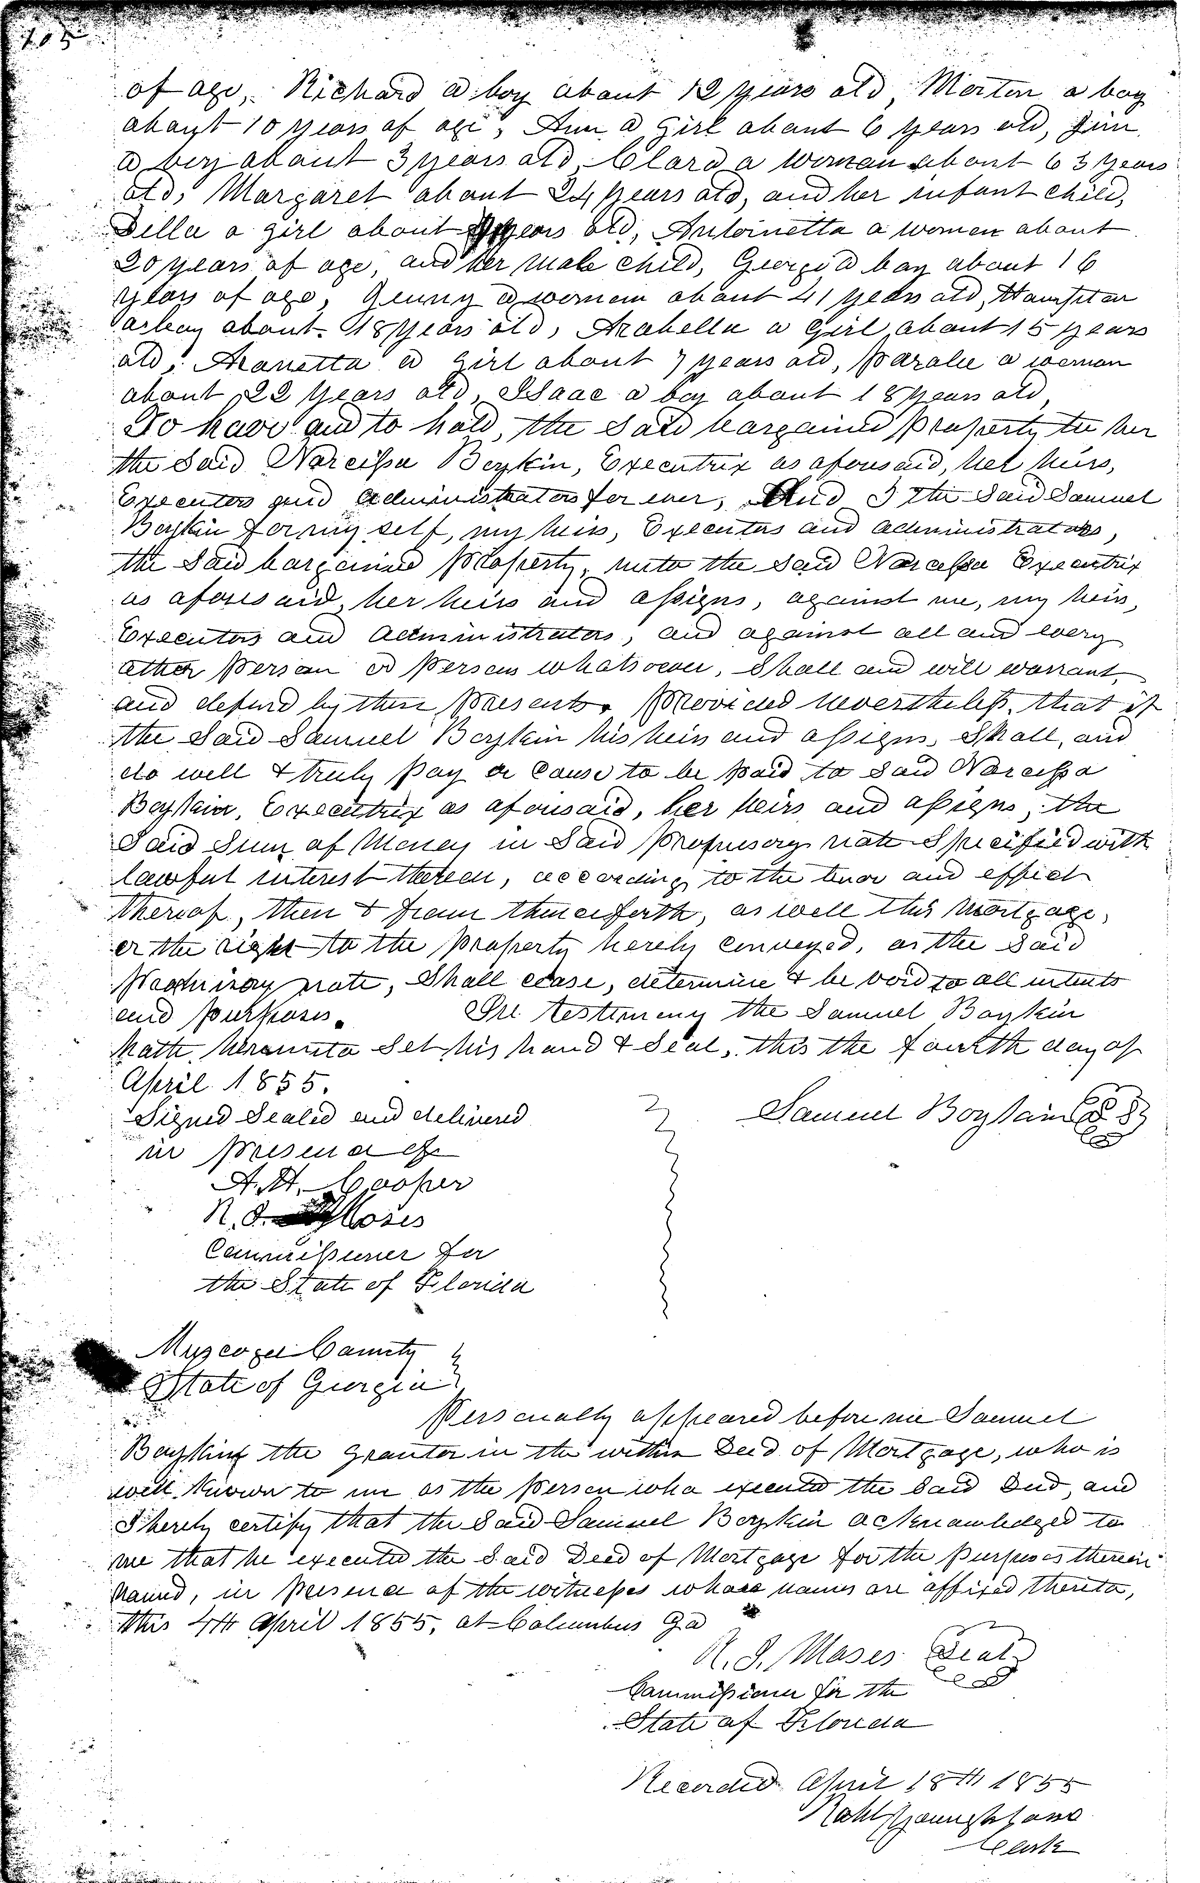 105
of age, Richard a boy about 12 years old, Morton a boy
about 10 years of age, Ann a girl about 6 years old, Jim
a boy about 3 years old, Clara a woman about 63 years
old, Margaret about 24 years old, and her infant child,
Della a girl about years old, Antoinetta a woman about
20 years of age, and her male child, George a boy about 16
years of age, Jenny a woman about 41 years old, Hampton
a boy about 18 years old, Arabella a girl about 15 years
old, Aranetta a girl about 7 years old, Paralee a woman
about 22 years old, Isaac a boy about 18 years old,
To have and to hold, the said bargained property to her
the said Narcissa Boykin, Executrix as aforesaid, her heirs,
Executors and administrators for ever, And I the said Samuel
Boykin for my self, my heirs, Executors and administrators,
the said bargained property, unto the said Narcissa Executrix
as aforesaid, her heirs and assigns, against me, my heirs,
Executors and administrators, and against all and every
other person or persons whatsoever, shall and will warrant
and defend by these presents. Provided nevertheless, that if
the said Samuel Boykin his heirs and assigns, shall, and
do well & truly pay or cause to be paid to said Narcissa
Boykin, Executrix as aforesaid, her heirs and assigns, the
said sum of Money in said promissory note specified with
lawful interest thereon, according to the tenor and effect
thereof, then & from thenceforth, as well this Mortgage,
or the right to the property hereby conveyed, as the said
promissory note, shall cease, determine & be void to all intents
and purposes. In testimony the Samuel Boykin
hath hereunto set his hand & seal, this the fourth day of
April 1855.
Signed Sealed and delivered
in presence of
Samuel Boykin L S
A. H. Cooper
R. J. Moses
Commissioner for
the State of Florida
Muscogee County
State of Georgia
Personally appeared before me Samuel
Boykin the grantor in the within Deed of Mortgage, who is
well known to me as the person who executed the said Deed, and
I hereby certify that the said Samuel Boykin acknowledged to
me that he executed the said Deed of Mortgage for the purposes therein
named, in presence of the witnesses whose names are affixed thereto,
this 4th April 1855, at Columbus Ga
R. J. Moses Seal
Commissioner for the
State of Florida
Recorded April 18th 1855
Clerk